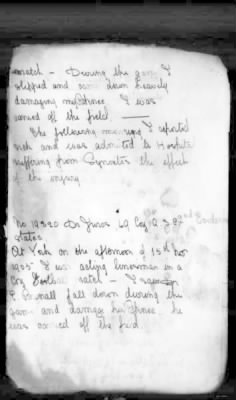 match - During the game I
slipped and came down heavily
damaging my knee. I was
carried off the field
The following morning I reported
sick and was admitted to Hospital
suffering from Synovitis the effect
of the injury.
No 19320 Dr Coy
states
At York on the afternoon of 15th Nov
1905 I was acting linesman in a
Coy Football match - I saw
E. fall down during the
game and damage his knee. he
was carried off the field.